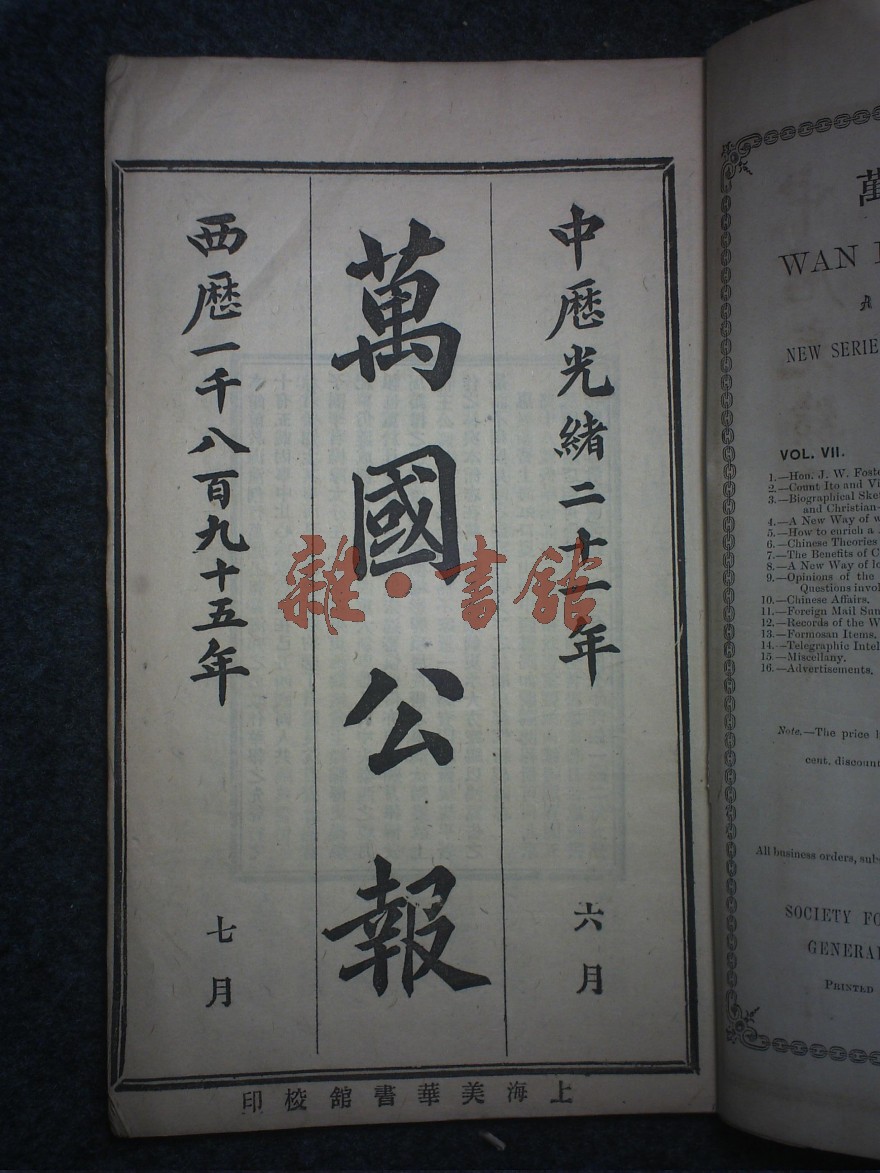 中歷光緒二十一年 六月
萬國公報
西歷一千八百九十五年 七月
上海美華書舘校印
雜·書舘
萬
WAN
NEW SERIE
VOL. VII.
1.—Hon. J. W. Foste
2.—Count Ito and Vi
3.—Biographical Sket
and Christian
4.—A New Way of w
5.—How to enrich a
6.—Chinese Theories
7.—The Benefits of C
8.—A New Way of lo
9.—Opinions of the
Questions invol
10.—Chinese Affairs.
11.—Foreign Mail Sum
12.—Records of the W
13.—Formosan Items.
14.—Telegraphic Intel
15.—Miscellany.
16.—Advertisements.
Note.—The price l
cent. discount
All business orders, subs
SOCIETY FO
GENERAL
PRINTED